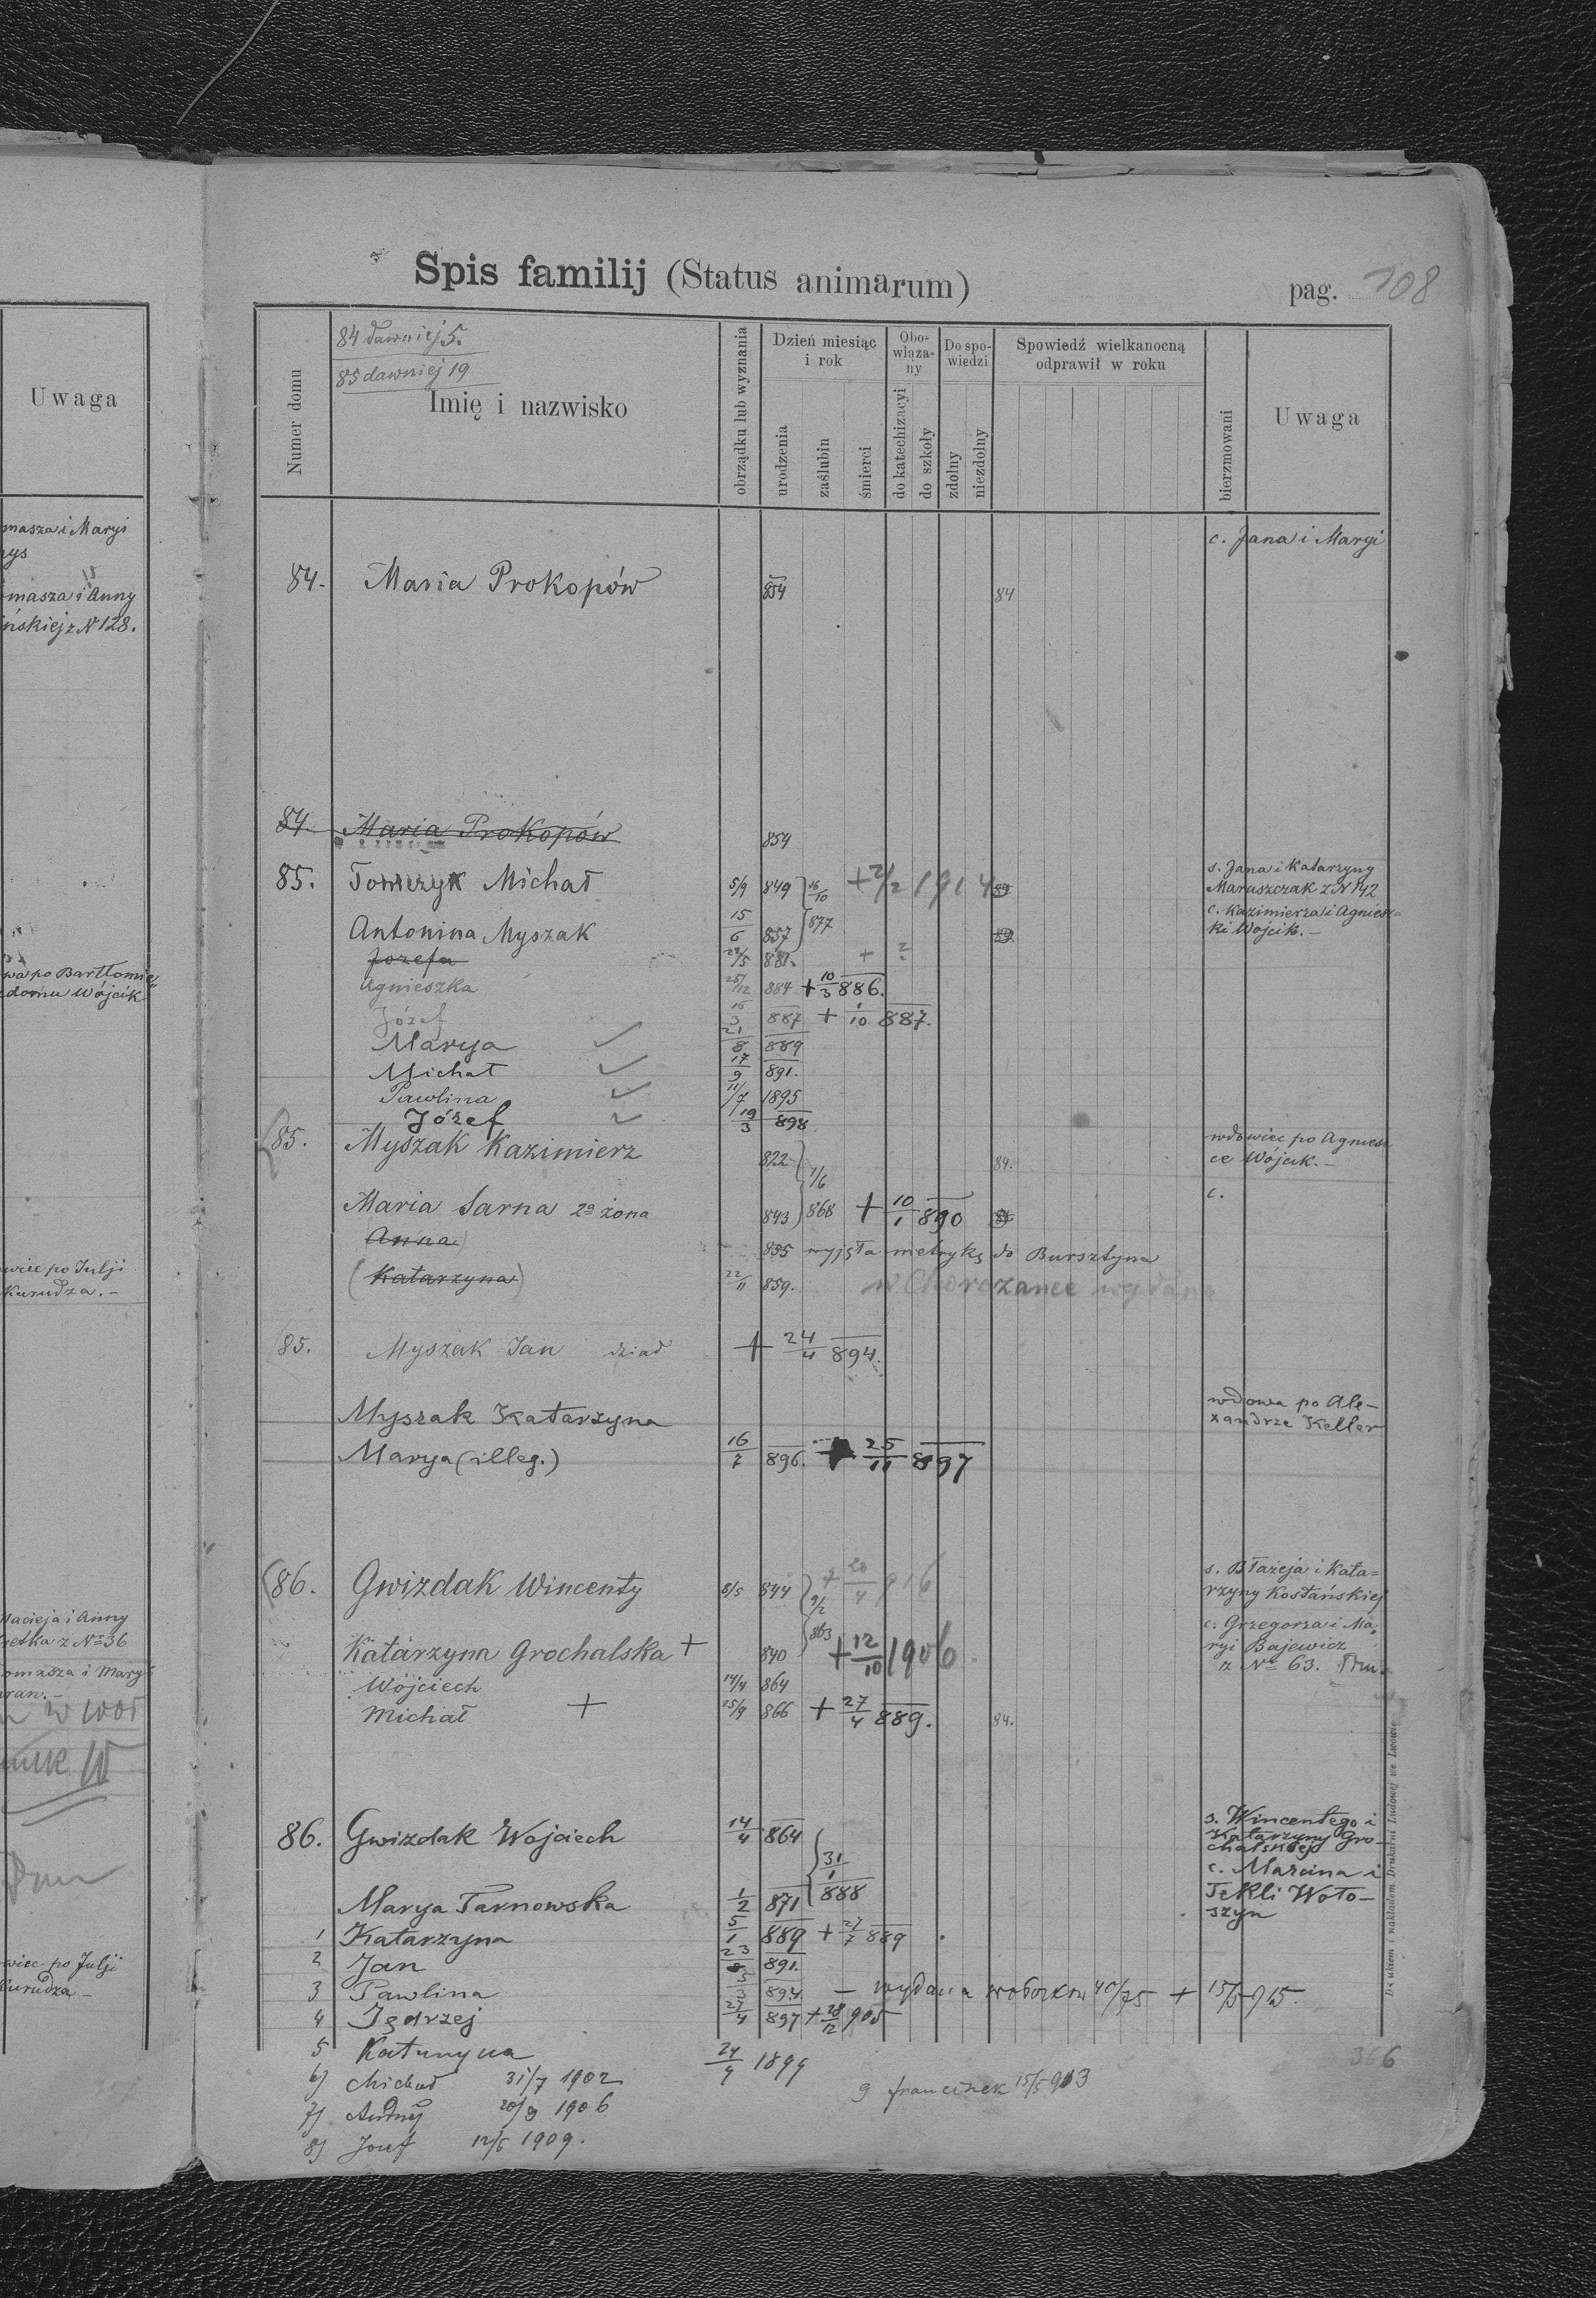 Uwaga
masza i Maryi
masza i Anny
ińskiej z N 128.
wa po Bartłomie
domu Wójcik
wiec po Julji
Kurudza. -
Macieja i Anny
etka z No 36
omasza i Mary
wiec po Julji
Kurudza -
Spis familij (Status animarum)
pag. 108
84 dawniej 5.
85 dawniej 19
Numer domu
Imię i nazwisko
obrządku lub wyznania
Dzień miesiąc i rok
urodzenia
zaślubin
śmierci
Obowiązany
do katechizacyi
do szkoły
Do spowiedzi
zdolny
niezdolny
Spowiedź wielkanocną odprawił w roku
bierzmowani
Uwaga
c. Jana i Maryi
84. Maria Prokopów 854 84
84. Maria Prokopów 854
85. Tomczyk Michał 5/9 849 16/10 877 + 2/2 1914
s. Jana i Katarzyny
Maruszczak z N 142
Antonina Myszak 15/6 857
c. Kazimierza i Agniesz=
ki Wojcik. -
Jozefa 881. + ?
Agnieszka 25/12 884 + 10/3 886.
Józef 16/3 887 + 1/10 887.
Marya 21/8 889
Michał 17/9 891.
Pawlina 11/7 1895
Józef 19/3 898
85. Myszak Kazimierz 822 7/6 868 84.
wdowiec po Agniesz
ce Wójcik. -
Maria Sarna 2a żona 843 + 10/1 890
c.
Anna 855 wyjęta metryka do Bursztyna
(Katarzyna) 22/11 859. w Chorczance wydana
85. Myszak Jan dziad + 24/4 894.
Myszak Katarzyna
wdowa po Ale-
xandrze Keller
Marya (illeg.) 16/7 896. + 25/11 897
86. Gwizdak Wincenty 8/5 844 9/2 863 + 20/4 916
s. Błażeja i Kata=
rzyny Kostańskiej
Katarzyna Grochalska + 840 + 12/10 1906
c. Grzegorza i Ma
ryi Bajewicz
z No 63.
Wojciech 14/4 864
Michał + 25/9 866 + 27/4 889. 84.
86. Gwizdak Wojciech 14/4 864 31/1 888
s. Wincentego i
Katarzyny Gro-
chalskiej
Marya Tarnowska 1/2 871
c. Marcina i
Tekli Woło-
szyn
1 Katarzyna 5/1 889 + 27/7 889
2 Jan 23/8 891.
3 Pawlina 894 - wydana + 15/5 915.
4 Jędrzej 27/4 897 + 28/12 905
5 Katarzyna 24/9 1899
6) Michał 31/7 1902
9 franciszek 15/5 913
7) Andrzej 20/9 1906
8) Jozef 12/6 1909.
366
Drukiem i nakładem Drukarni Ludowej we Lwowie